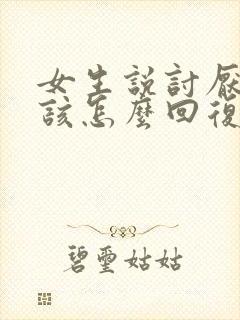 女生說討厭
該怎麼回復
碧璽姑姑